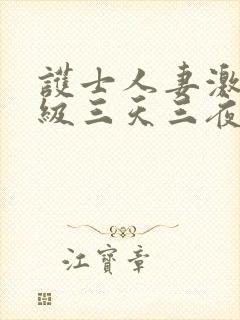 護士人妻激
級三天三夜
江寶章